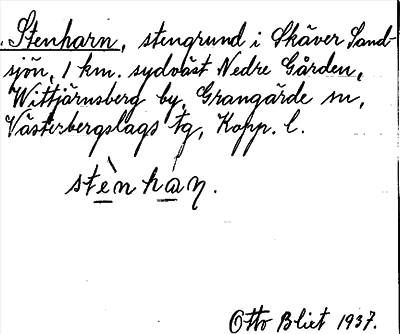 Stenharn, stengrund i Skäver Sand-
sjön, 1 km. sydväst Nedre Gården,
Wittjärnsberg by, Grangärde sn,
Västerbergslags tg, Kopp. l.
stènhàṇ.
Otto Blixt 1937.